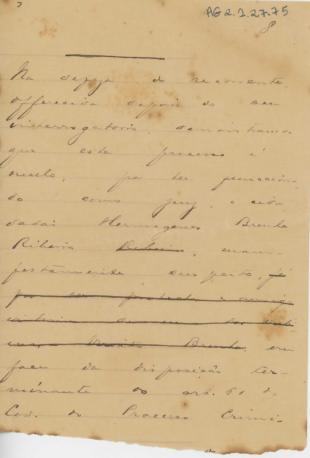 AG2.1.27.75
8
Na defeza do recorrente
offerecida depois do seu
interrogatorio, demonstramos
que este processo é
nullo, por ter funcciona-
do como juiz, o cida-
dadão Hermogenes Brenha
Ribeiro, mani-
festamente suspeito,
em
face da disposição ter-
minante do art. 61 do
Cod. do Processo Crimi-